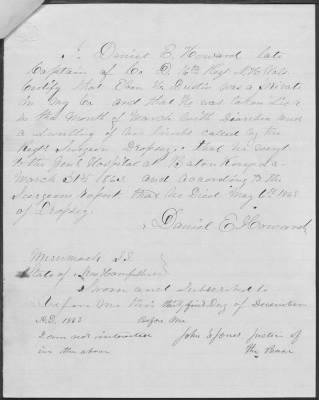 I, Daniel E. Howard late
Captain of Co D. 16th Regt N.H. Vols.
Certify that Dustin was a Private
in my Co and that he was taken Sick
in the Month of March with Diarrhea and
a swelling of his limbs called by the
Regt Surgeon Dropsy. that he went
to the Genl Hospital at Baton Rouge La
March 31st 1863 and according to the
Surgeons report that he Died May 6th 1863
of Dropsy.
Daniel E Howard
Merrimack SS
State of New Hampshire
Sworn and Subscribed to
before me this thirty first Day of December
A.D. 1863 Before Me
I am not interested John E Jones Justice of
in the above the Peace